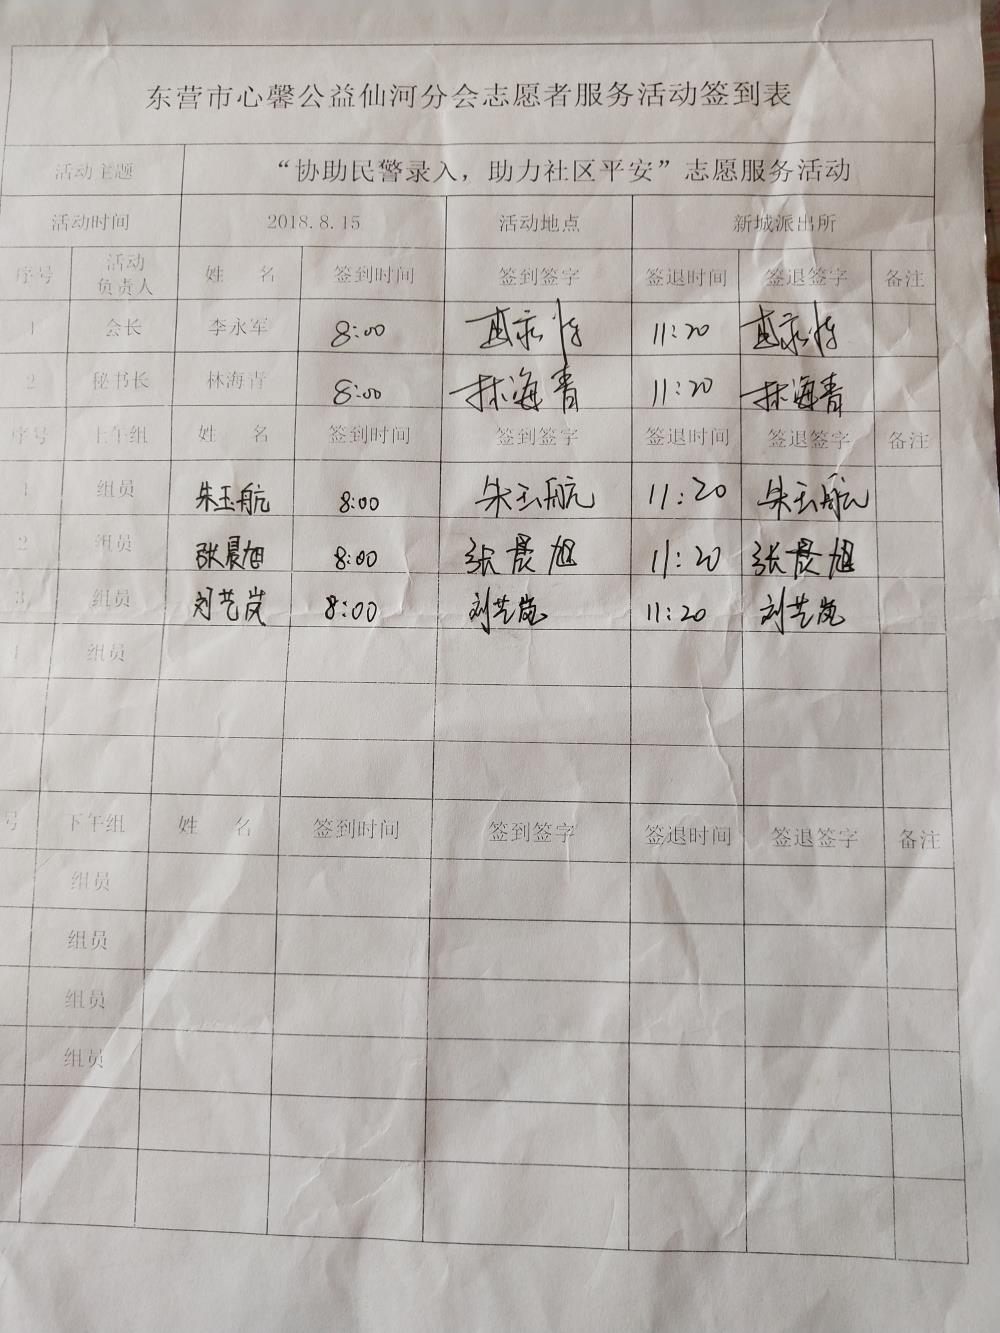 东营市心馨公益仙河分会志愿者服务活动签到表
活动主题 “协助民警录入，助力社区平安”志愿服务活动
活动时间 2018.8.15 活动地点 新城派出所
序号 活动负责人 姓 名 签到时间 签到签字 签退时间 签退签字 备注
1 会长 李永军 8:00 11:20
2 秘书长 林海青 8:00 林海青 11:20 林海青
序号 上午组 姓 名 签到时间 签到签字 签退时间 签退签字 备注
1 组员 朱玉航 8:00 朱玉航 11:20 朱玉航
2 组员 张晨旭 8:00 张晨旭 11:20 张晨旭
3 组员 刘艺岚 8:00 刘艺岚 11:20 刘艺岚
组员
号 下午组 姓 名 签到时间 签到签字 签退时间 签退签字 备注
组员
组员
组员
组员